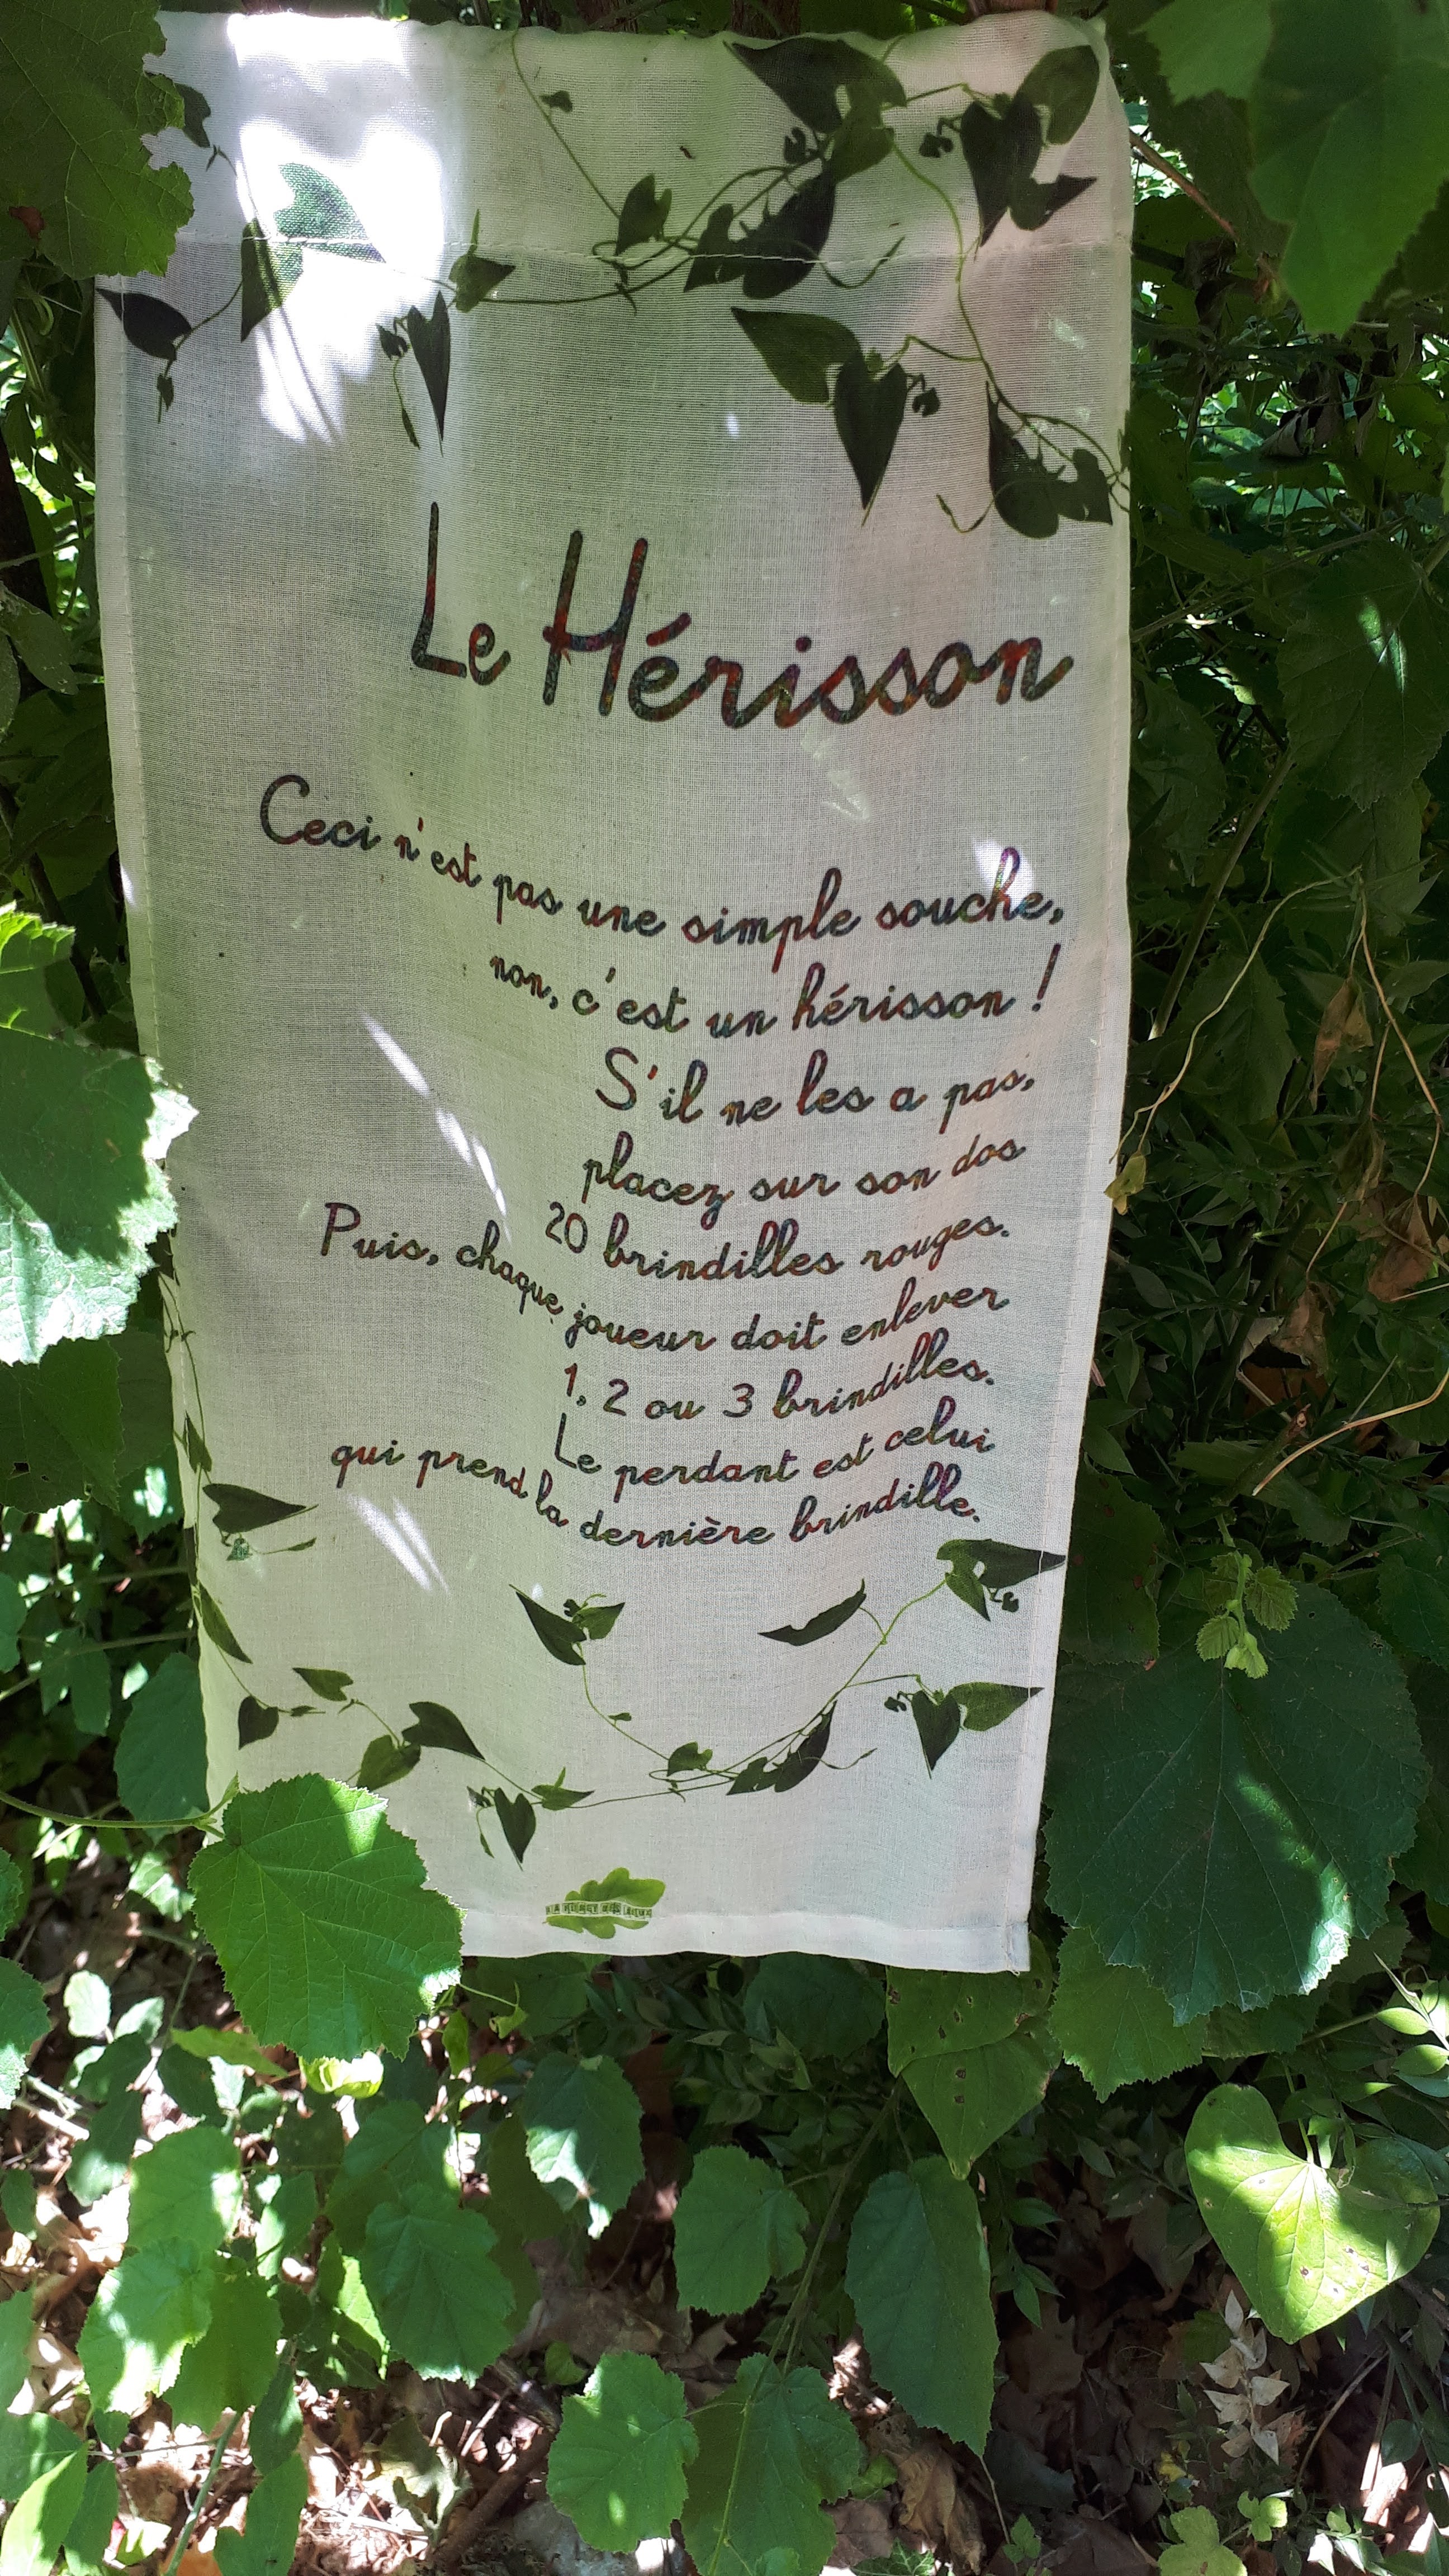 Le Hérisson
Ceci n'est pas une simple souche,
non, c'est un hérisson !
S'il ne les a pas,
placez sur son dos
20 brindilles rouges.
Puis, chaque joueur doit enlever
1, 2 ou 3 brindilles.
Le perdant est celui
qui prend la dernière brindille.